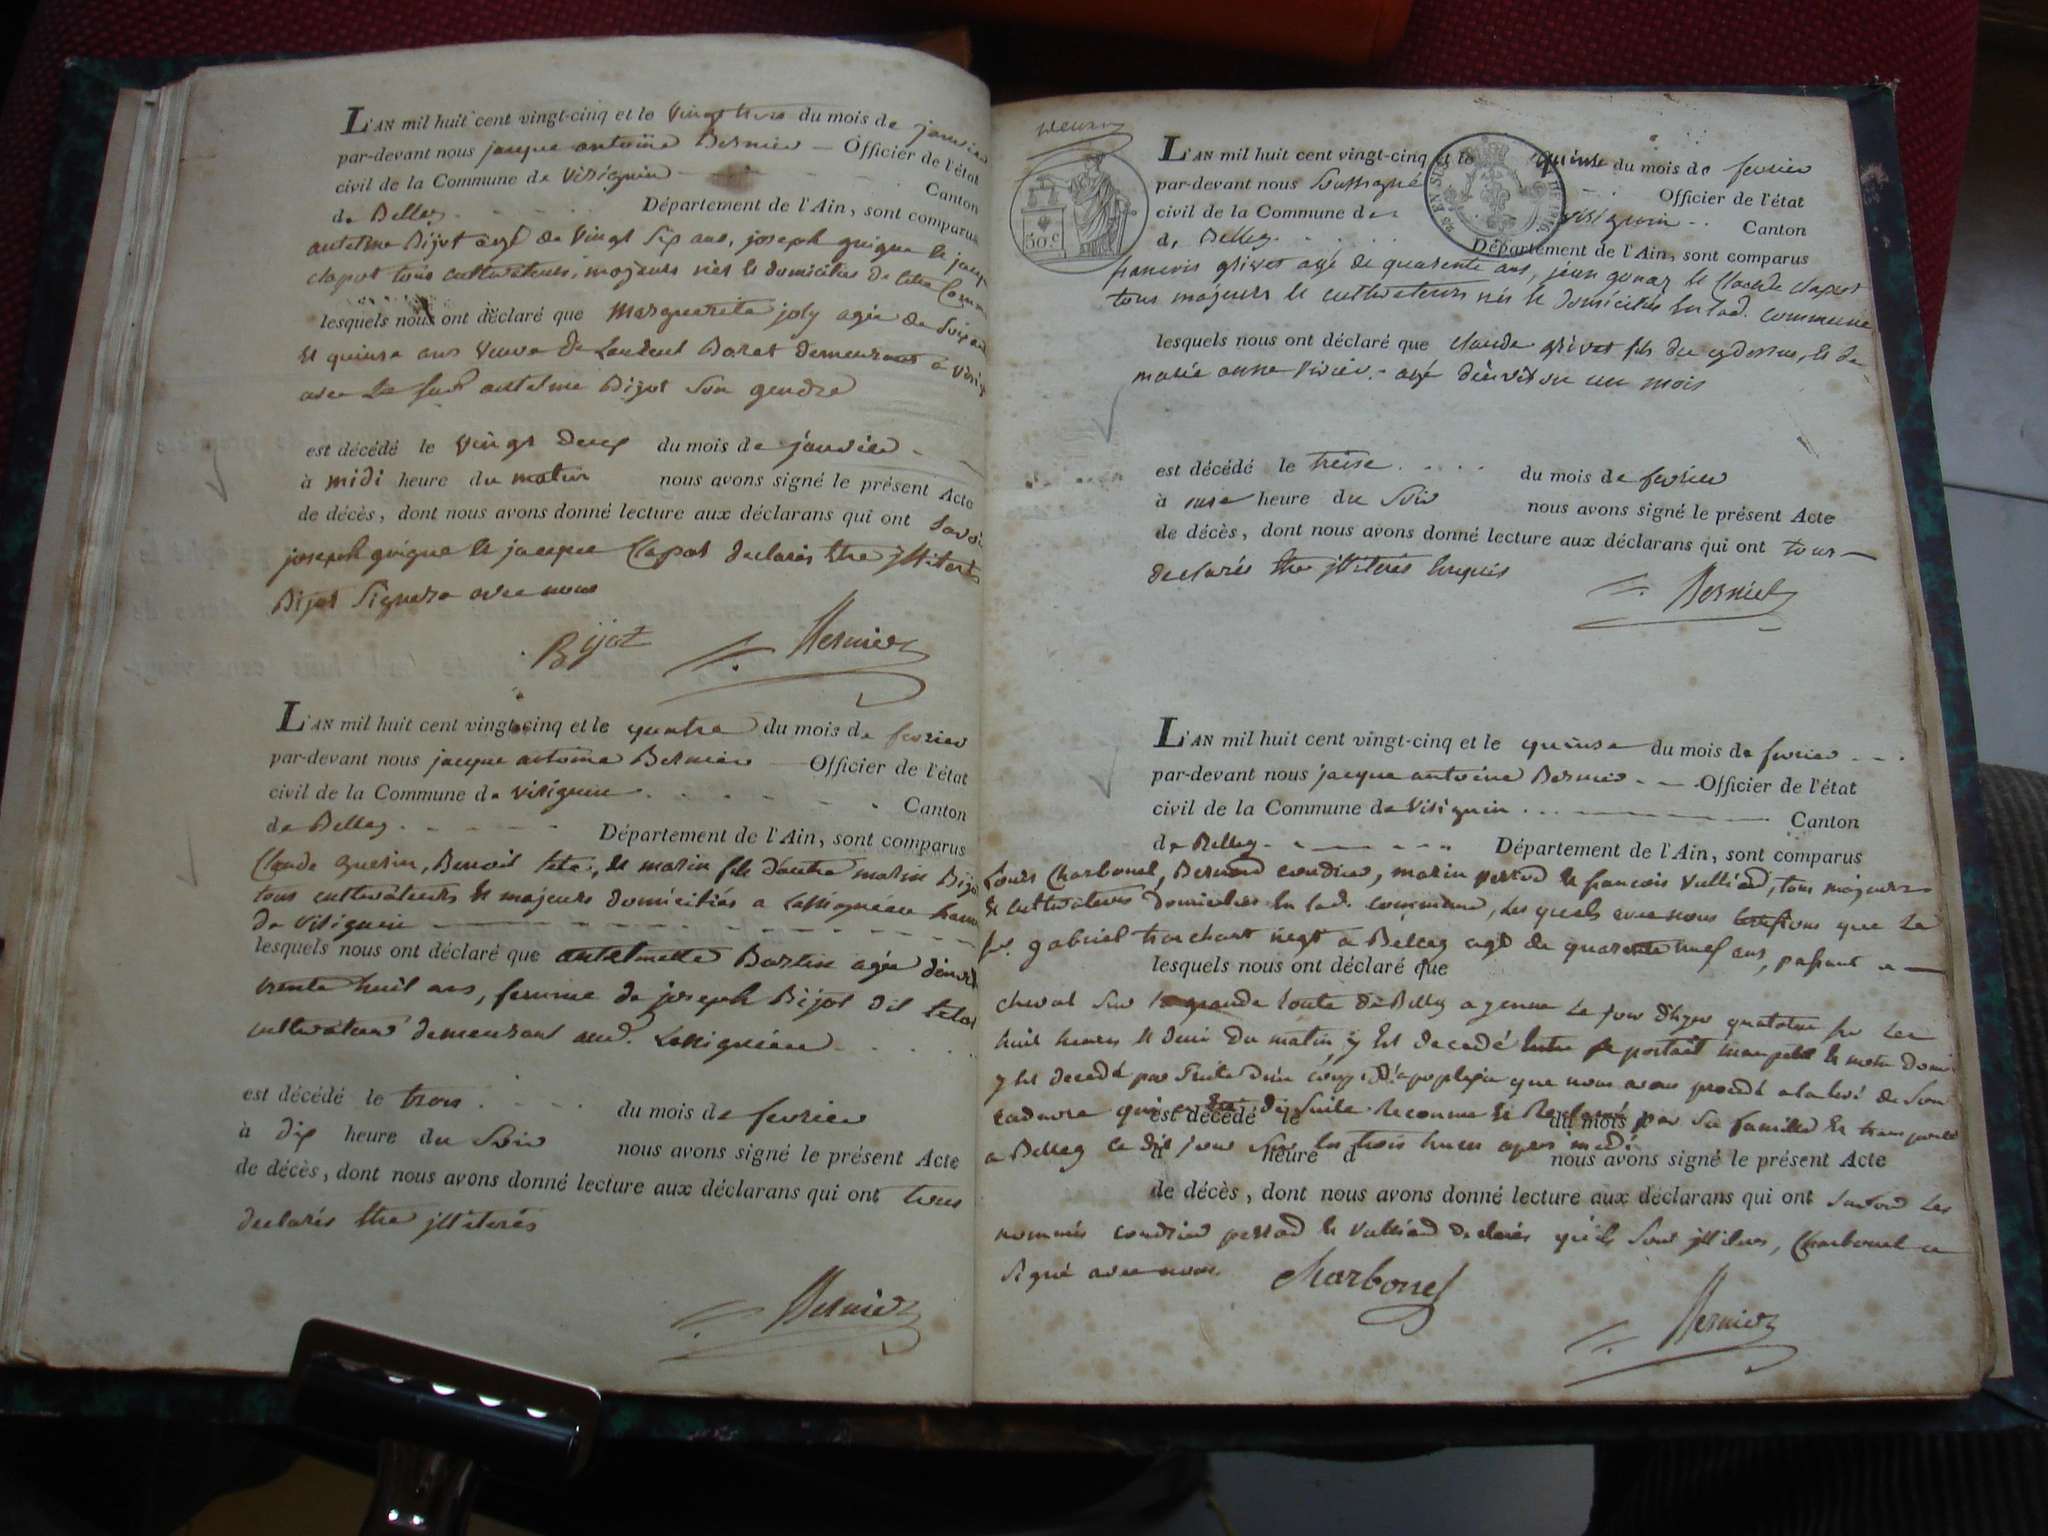 L'AN mil huit cent vingt-cinq et le vingt trois du mois de janvier
par-devant nous jacque antoine Bernier — Officier de l'état
civil de la Commune de Virignin Canton
de Belley Département de l'Ain, sont comparus
antelme Bijot agé de vingt six ans, joseph guigue et jacque
clapot tous cultivateurs, majeurs nés et domiciliés de cette Comm
lesquels nous ont déclaré que Marguerite joly agée de Soixante
et quinse ans veuve de Laurent Boret demeurant à virig
avec antelme Bijot son gendre
est décédé le vingt deux du mois de janvier
à midi heure du matin nous avons signé le présent Acte
de décès, dont nous avons donné lecture aux déclarans qui ont savoir
joseph guigue et jacque Clapot declarés être illiterés
Bijot Signera avec nous
Bijot Bernier
L'AN mil huit cent vingt-cinq et le quatre du mois de fevrier
par-devant nous jacque antoine Bernier — Officier de l'état
civil de la Commune de virignin Canton
de Belley Département de l'Ain, sont comparus
Claude guerin, Benoit teta, et marin fils d'autre marin Bijot
tous cultivateurs et majeurs domiciliés a
de Virignin
lesquels nous ont déclaré que antelmette Bortin agée d'environ
trente huit ans, femme de joseph Bijot dit teta
cultivateur demeurant aud.
est décédé le trois du mois de fevrier
à dix heure du Soir nous avons signé le présent Acte
de décès, dont nous avons donné lecture aux déclarans qui ont tous
declarés être illiterés
Bernier
50 c
L'AN mil huit cent vingt-cinq et le quinse du mois de fevrier
par-devant nous Soussigné Officier de l'état
civil de la Commune de virignin Canton
de Belley Département de l'Ain, sont comparus
francois grivet agé de quarente ans, jean gonaz et Claude clapot
tous majeurs et cultivateurs nés et domiciliés en lad. commune
lesquels nous ont déclaré que claude grivet fils du cydessus, et de
marie anne agé d'environ un mois
est décédé le treise du mois de fevrier
à onse heure du Soir nous avons signé le présent Acte
de décès, dont nous avons donné lecture aux déclarans qui ont tous
declarés être illiterés requis
Bernier
L'AN mil huit cent vingt-cinq et le quinse du mois de fevrier
par-devant nous jacque antoine Bernier — Officier de l'état
civil de la Commune de Virignin Canton
de Belley Département de l'Ain, sont comparus
Louis Charbonel, Bernard condier, marin perrod et francois Vulliod, tous majeurs
et cultivateurs domiciliés en lad. commune, les quels avec nous que le
Sr. gabriel trochart negt a Belley agé de quarente neuf ans, passant a
lesquels nous ont déclaré que
cheval sur la grande route de Belley a yenne le jour d'hyer quatorse sur les
huit heures et demi du matin, y est decedé
y est decedé par suite d'un coup d'apoplexie que nous avons procedé a la levé de son
cadavre qui a été de suite reconnue et reclamé par sa famille et transporté
est décédé le du mois
a Belley ce dit jour sur les trois heures apres midi
à heure d nous avons signé le présent Acte
de décès, dont nous avons donné lecture aux déclarans qui ont les
nommés condier perrod et vulliod declarés qu'ils sont illiteres, Charbonel a
signé avec nous Charbonel
Bernier